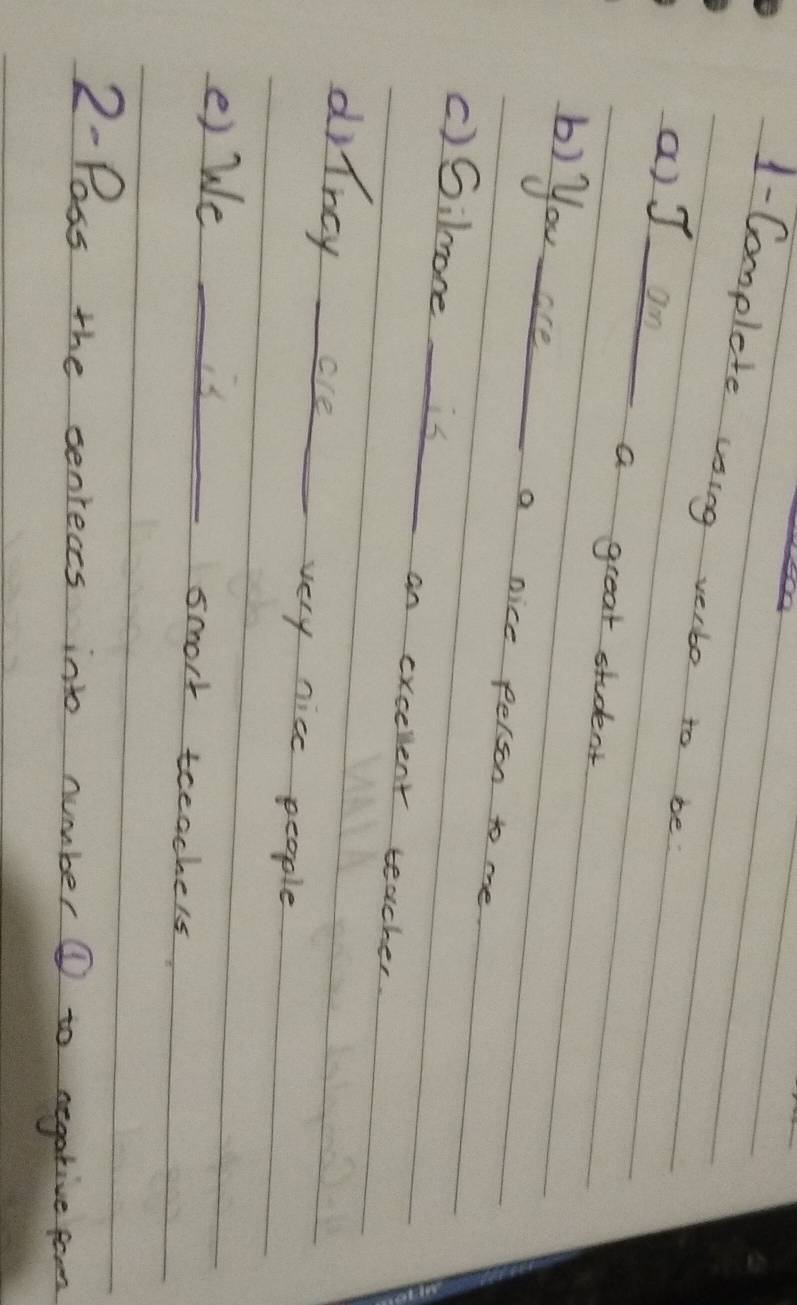 1-Complete using verbo to be:
a) I am a great student
b) You are a nice person to me.
c) Silmone is an excellent teacher.
d) They are very nice people
e) We is smart teeachers.
2-Pass the senteces into number ① to negative form